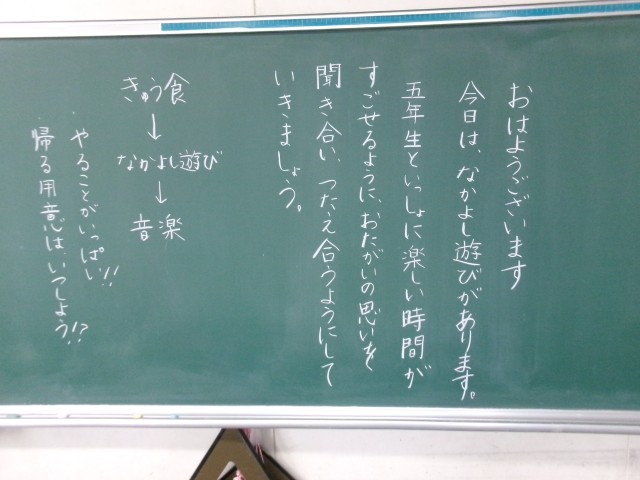 おはようございます
今日は、なかよし遊びがあります。
五年生といっしょに楽しい時間が
すごせるように、おたがいの思いを
聞き合い、つたえ合うようにして
いきましょう。
きゅう食
↓
なかよし遊び
↓
音楽
・やることがいっぱい!!
・帰る用意は、いつしよう!?